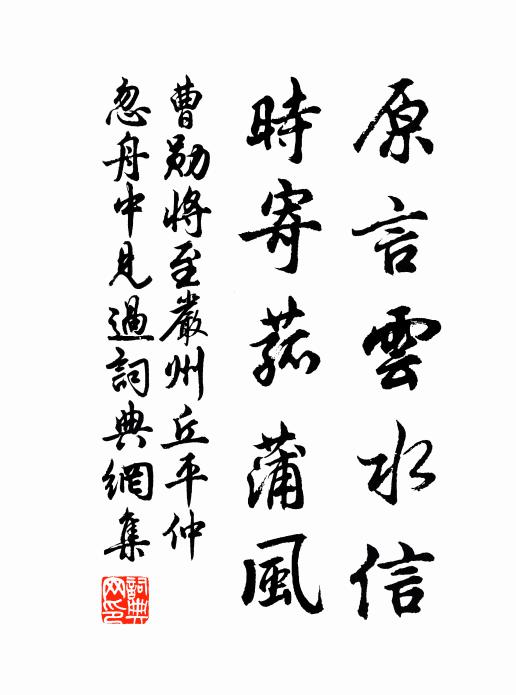 原言雲水信
時寄菰蒲風
曹勛將至嚴州丘平仲
忽舟中見過詞典網集
詞典網印